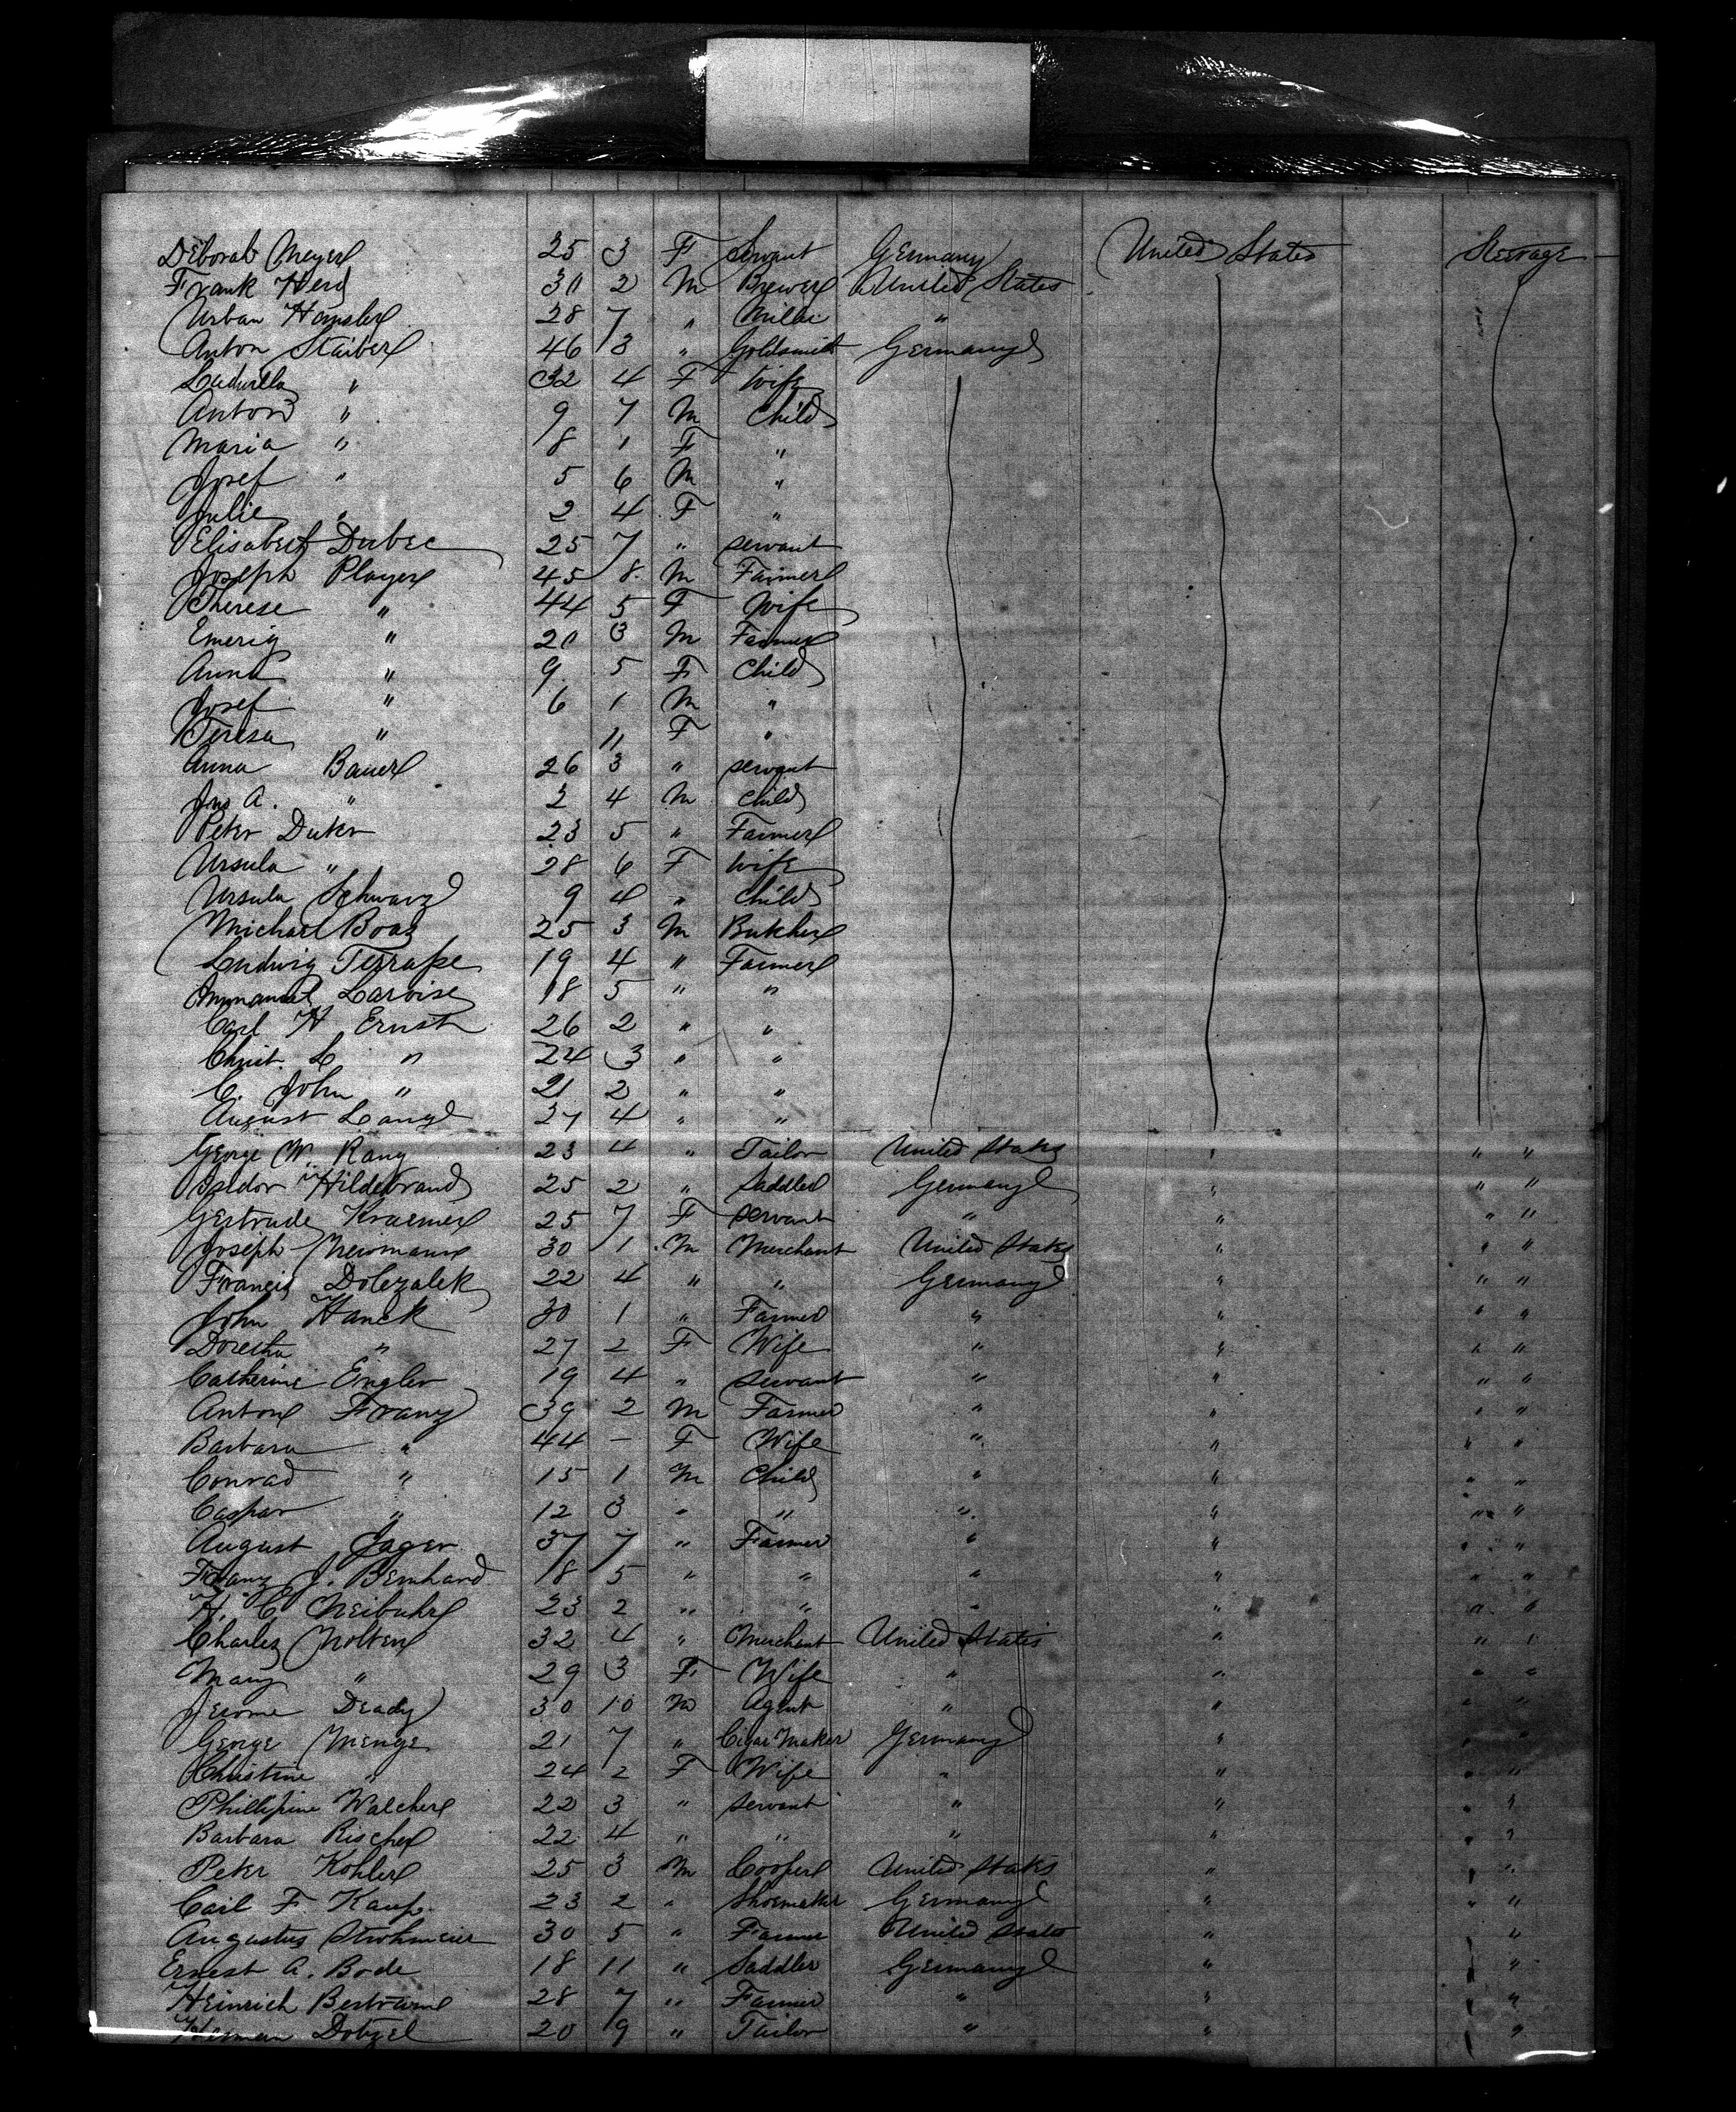 Deborah Meyer 25 3 F Servant Germany United States Steerage
Frank Herd 30 2 M Brewer United States
Urban 28 7 " Miller "
Anton Staiber 46 3 " Goldsmidt Germany
Ludwilla " 32 4 F Wife
Anton " 9 7 M Child
Maria " 8 1 F "
Josef " 5 6 M "
Julie " 2 4 F "
Elisabeth Dubec 25 7 " servant
Joseph Player 45 8 M Farmer
Therese " 44 5 F Wife
Emerig " 20 3 M Farmer
Anna " 9 5 F Child
Josef " 6 1 M "
Teresa " 11 F "
Anna Bauer 26 3 " servant
Jno A. " 2 4 M Child
Peter Duker 23 5 " Farmer
Ursula " 28 6 F Wife
Ursula Schwarz 9 4 " Child
Michael Boaz 25 3 M Butcher
Ludwig 19 4 " Farmer
18 5 " "
Carl H Ernst 26 2 " "
Christ. L " 24 3 " "
C. John " 21 2 " "
August Lang 27 4 " "
George W. Rang 23 4 " Tailor United States " " "
Isidor Hildebrand 25 2 " Saddler Germany " " "
Gertrude Kraemer 25 7 F servant " " " "
Joseph Newmann 30 1 M Merchant United States " " "
Francis Dolezalek 22 4 " " Germany " " "
John Hanek 30 1 " Farmer " " " "
Doretha " 27 2 F Wife " " " "
Catherine Engler 19 4 " servant " " " "
Anton Franz 39 2 M Farmer " " " "
Barbara " 44 – F Wife " " " "
Conrad " 15 1 M Child " " " "
Caspar " 12 3 " " " " " "
August Jager 37 7 " Farmer " " " "
Franz J. Bernhard 18 5 " " " " " "
H. C. Neibuhr 23 2 " " " " " "
Charles Nolten 32 4 " Merchant United States " " "
Mary " 29 3 F Wife " " " "
Jerome Deady 30 10 M Agent " " " "
George Menge 21 7 " Cigar Maker Germany " " "
Christine " 24 2 F Wife " " " "
Phillipine Walcher 22 3 " servant " " " "
Barbara Rischer 22 4 " " " " " "
Peter Kohler 25 3 M Cooper United States " " "
Carl F Kaup. 23 2 " Shoemaker Germany " " "
Augustus Strohmeier 30 5 " Farmer United States " "
Ernest A. Bode 18 11 " Saddler Germany " "
Heinrich Bertram 28 7 " Farmer " " "
Herman Dotzel 20 9 " Tailor " " "